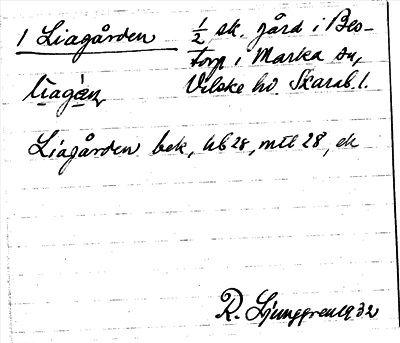 1 Liagården ½ sk. gård i Bes-
torp i Marka sn,
liagån Vilske hd. Skarab. l.
Liagården bek, hb 28, mtl 28, ek
R. Ljunggren 1932